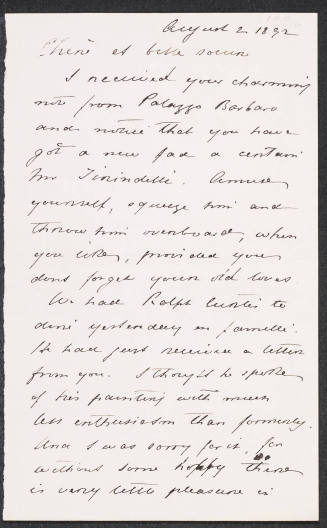 August 2 1892
Chère et belle soeur
I received your charming
note from Palazzo Barbaro
and notice that you have
got a new fad a certain
Mr Tirindelli. Amuse
yourself, squeeze him and
throw him overboard, when
you like, provided you
dont forget your old loves.
We had Ralph Curtis to
dine yesterday en famille.
He had just received a letter
from you. I thought he spoke
of his painting with much
less enthusiasm than formerly.
And I was sorry for it, for
without some hobby there
is very little pleasure in